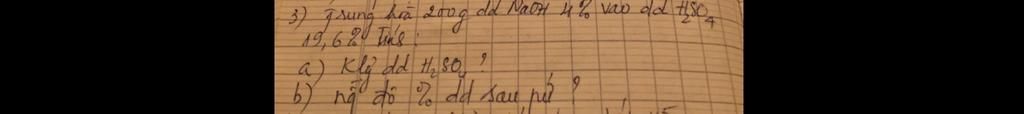 3) trung hoà 200g dd NaOH 4% vào dd H₂SO₄
19,6% Tính:
a) Klg dd H₂SO₄?
b) ng độ % dd sau pứ?